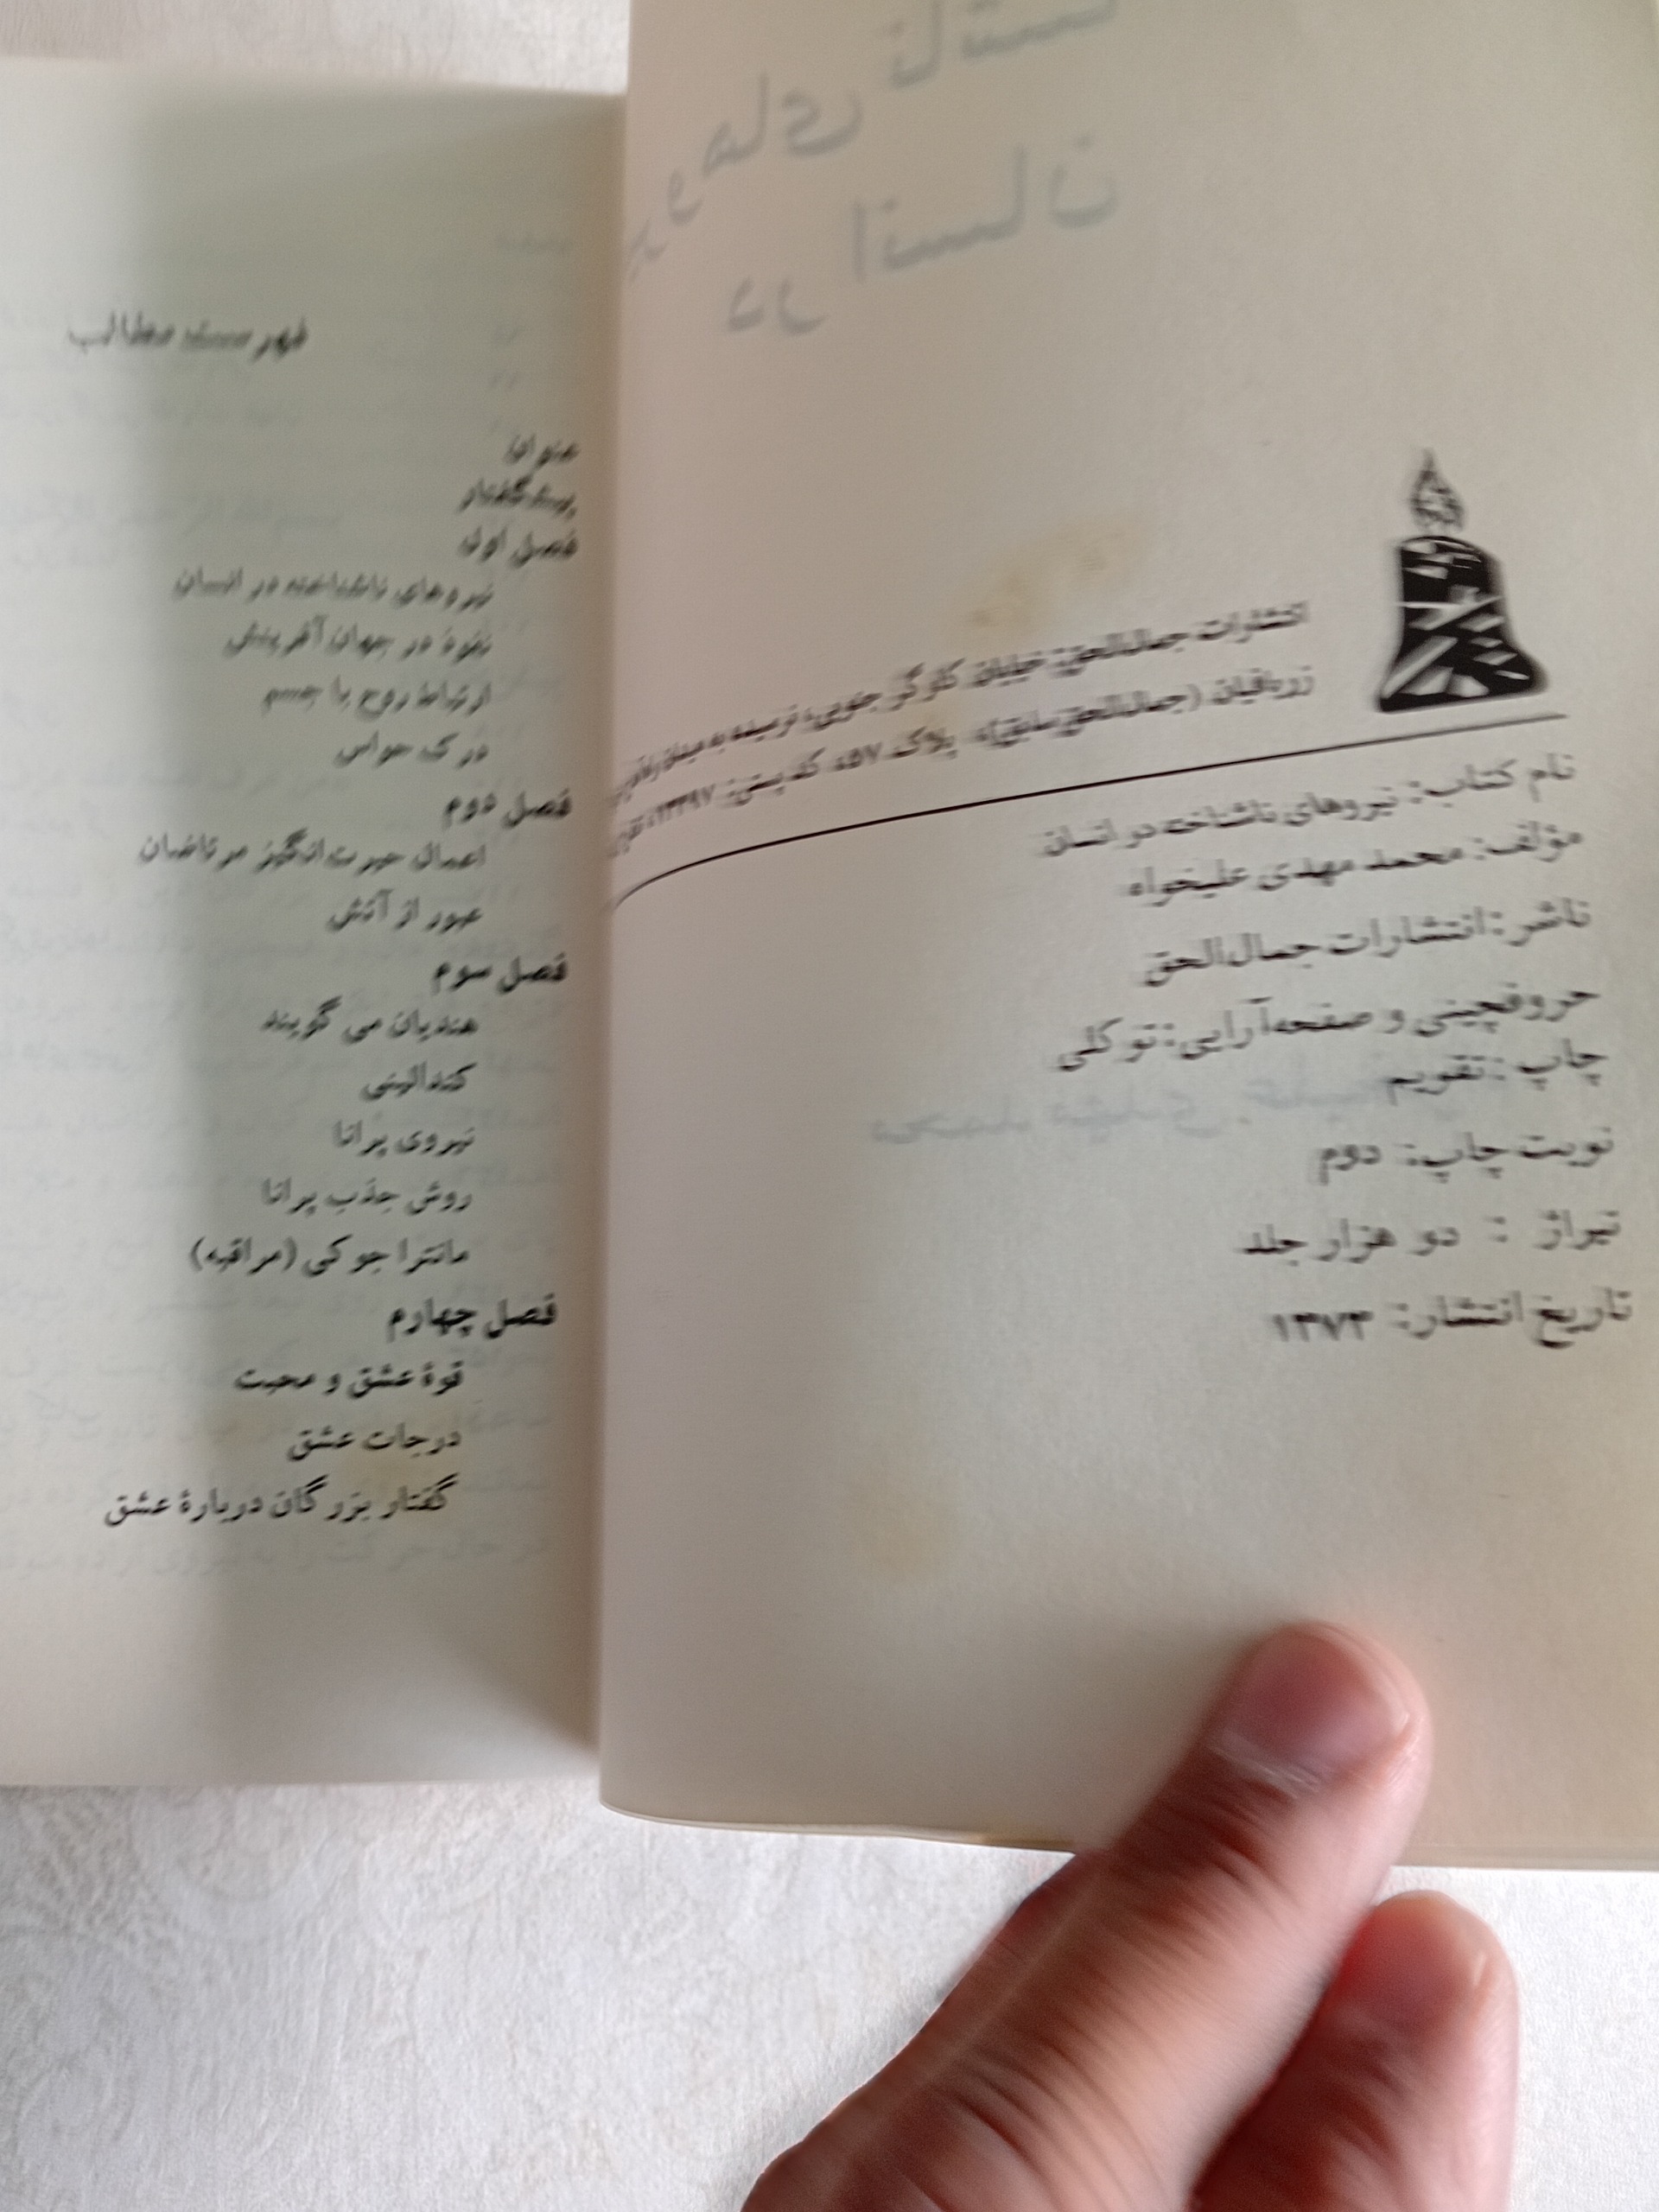 انتشارات جمال‌الحق: خیابان کارگر جنوبی، نرسیده به میدان
زربافیان (جمال‌الحق سابق)، پلاک ۵۷، کد پستی: ۱۳۳۹۷،
نام کتاب: نیروهای ناشناخته در انسان
مؤلف: محمد مهدی علیخواه
ناشر: انتشارات جمال‌الحق
حروفچینی و صفحه‌آرایی: توکلی
چاپ: تقویم
نوبت چاپ: دوم
تیراژ : دو هزار جلد
تاریخ انتشار: ۱۳۷۳
فهرست مطالب
عنوان
پیشگفتار
فصل اول
نیروهای ناشناخته در انسان
نفوذ در جهان آفرینش
ارتباط روح با جسم
درک حواس
فصل دوم
اعمال حیرت‌انگیز مرتاضان
عبور از آتش
فصل سوم
هندیان می گویند
کندالینی
نیروی پرانا
روش جذب پرانا
مانترا جوکی (مراقبه)
فصل چهارم
قوهٔ عشق و محبت
درجات عشق
گفتار بزرگان دربارهٔ عشق